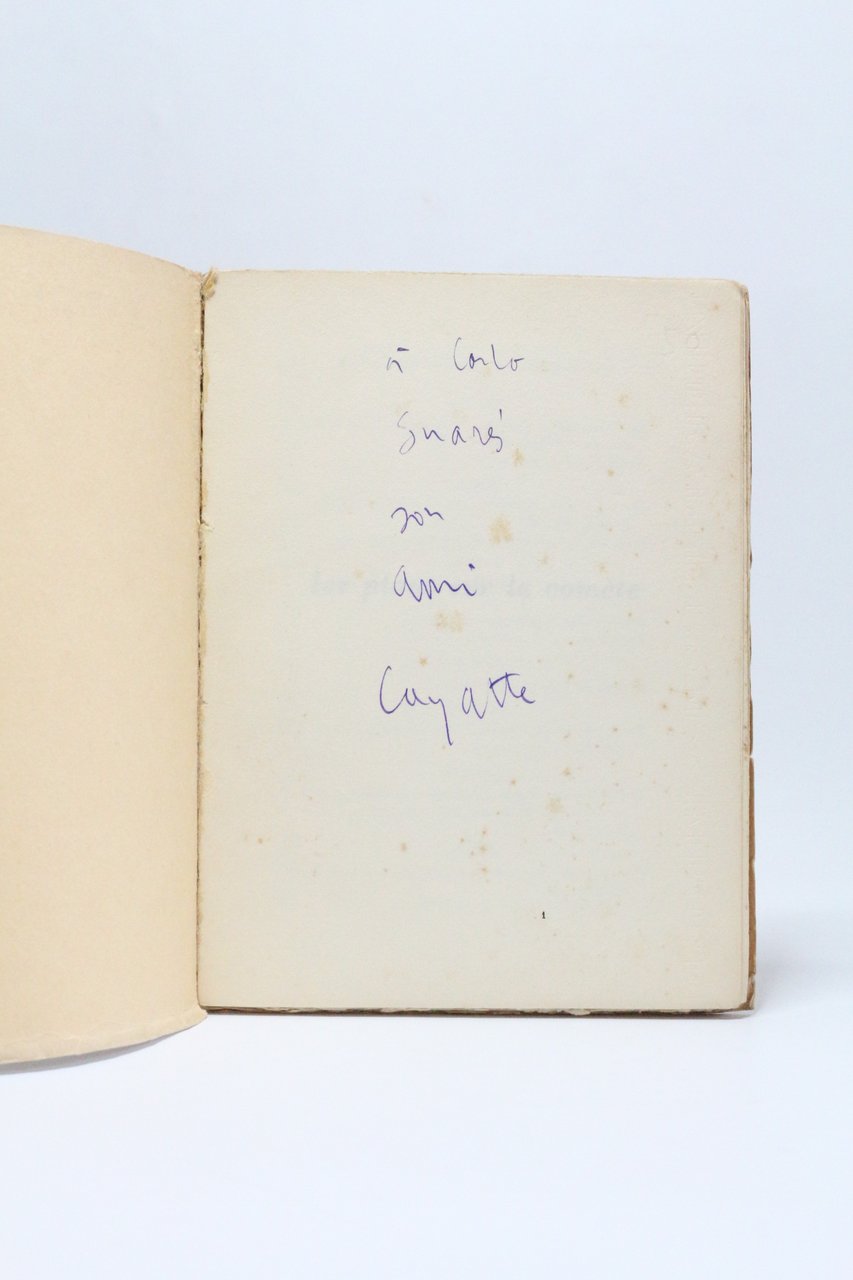 à Carlo
Suarés
son
ami
Cayatte
1